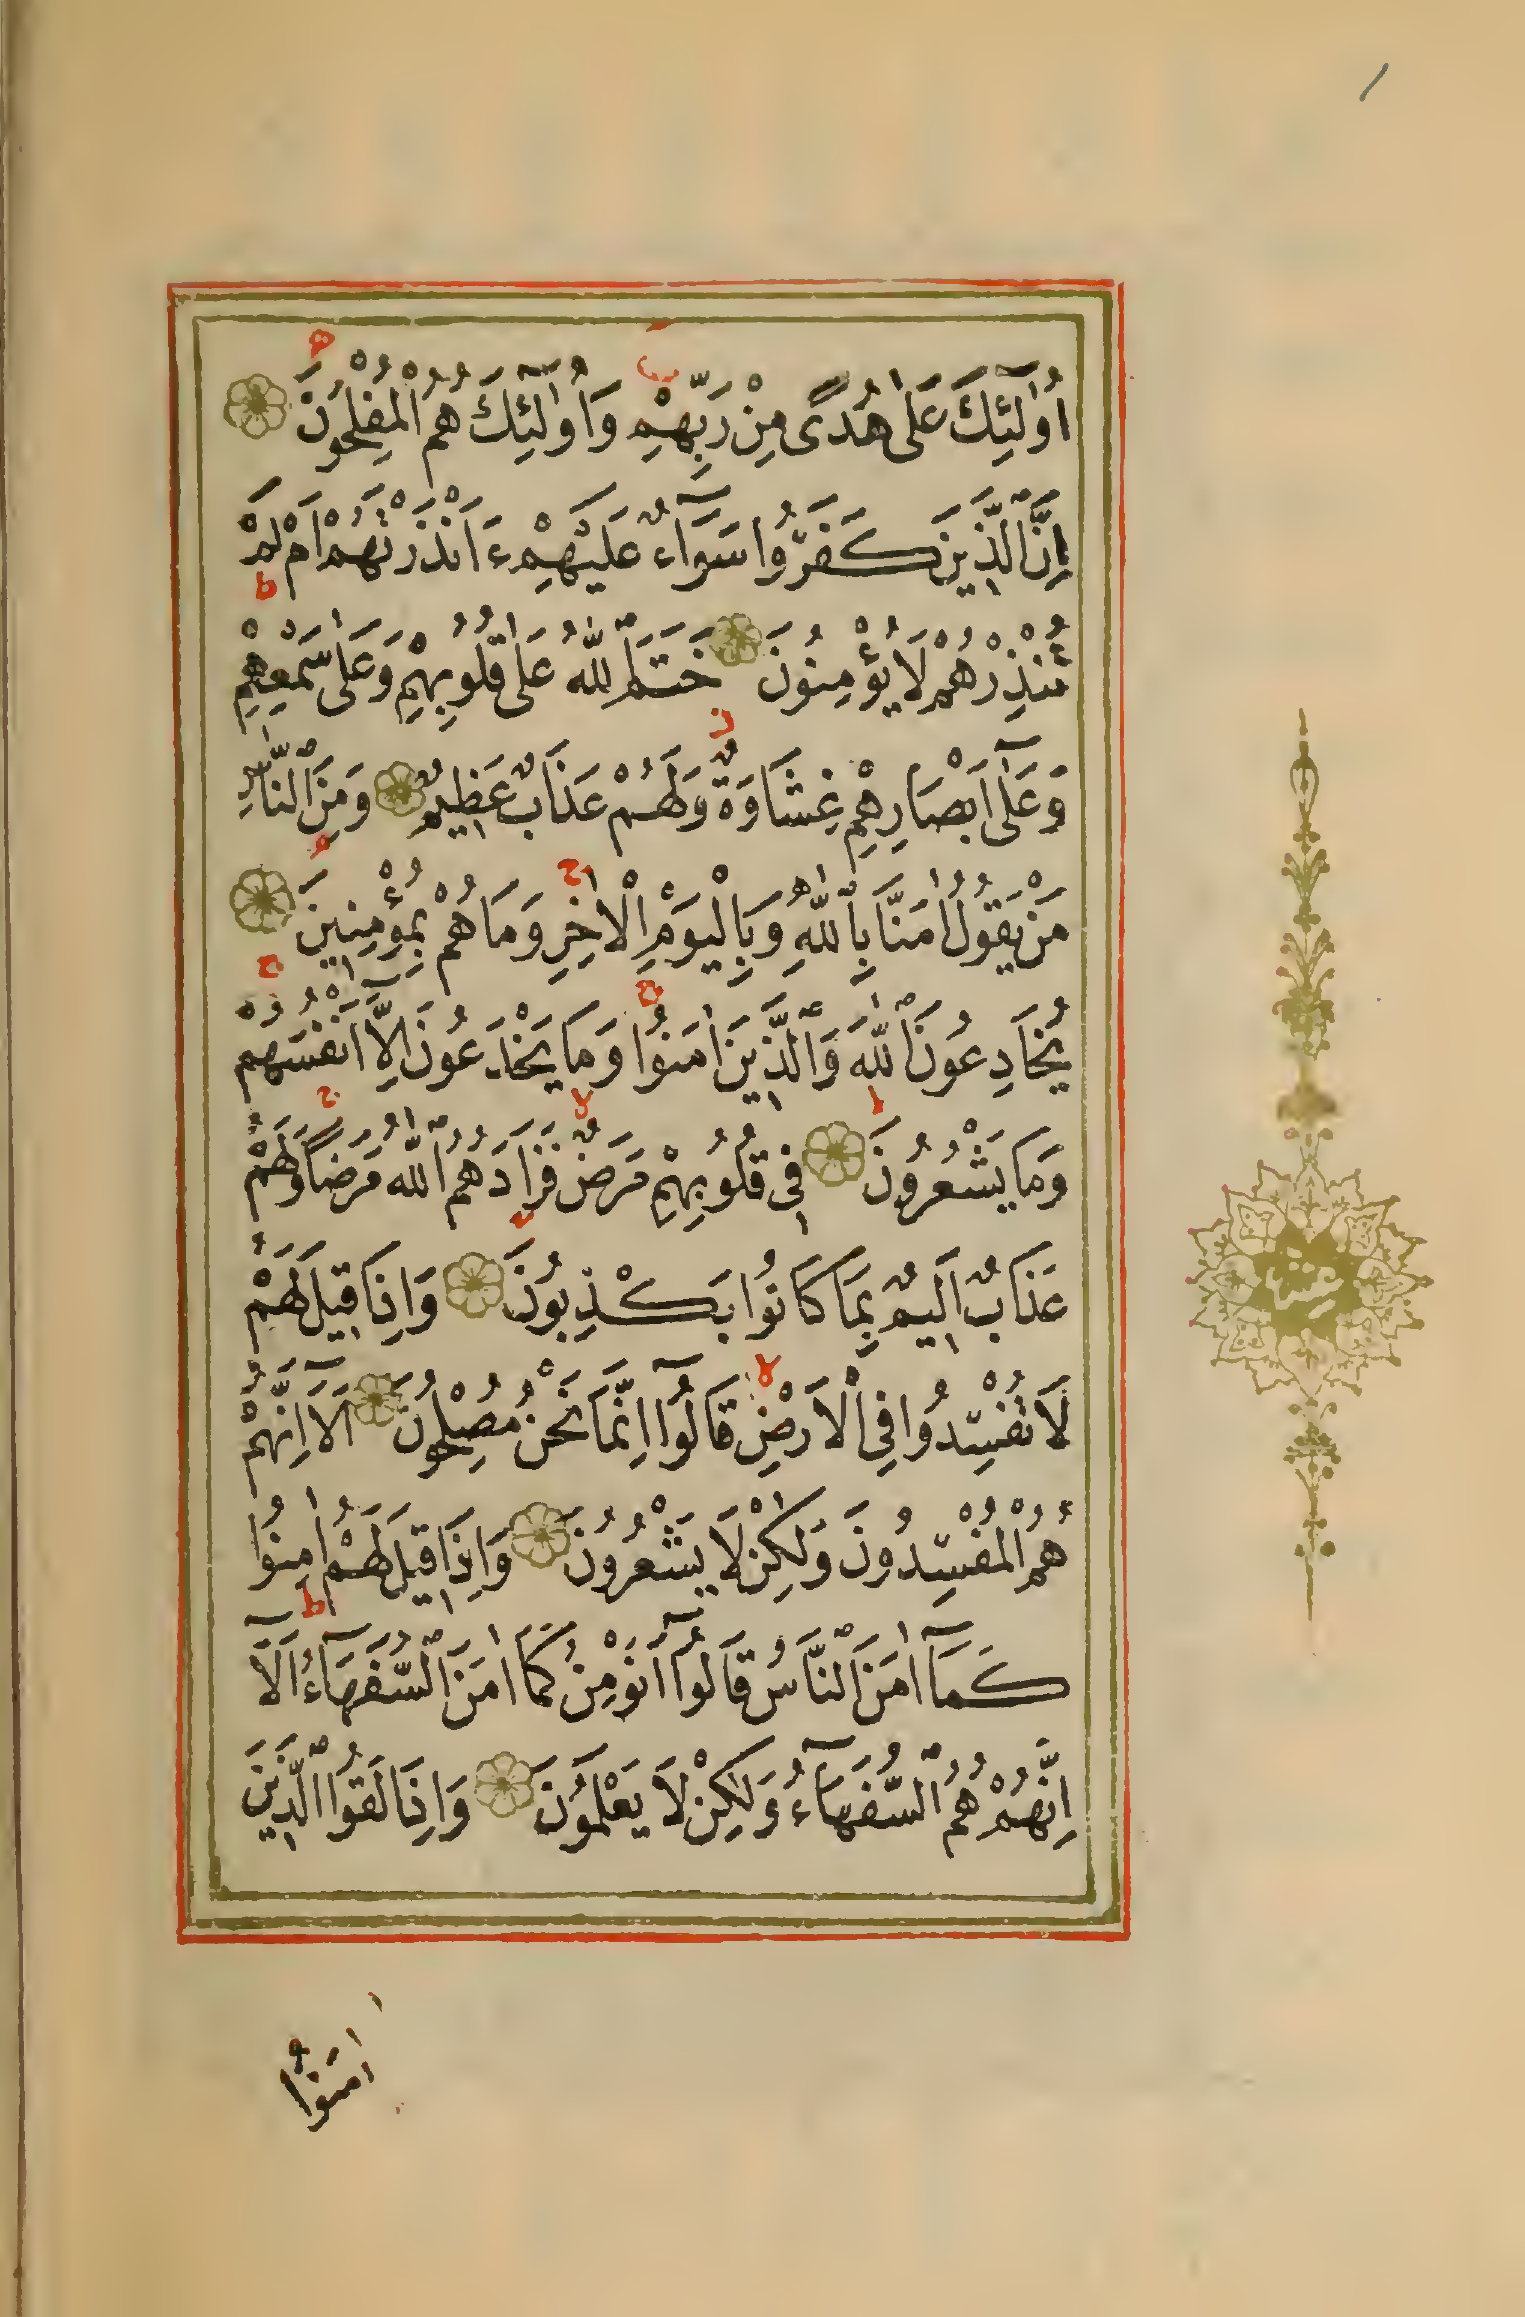 اُولٰٓئِكَ عَلٰى هُدًى مِنْ رَبِّهِمْ وَاُولٰٓئِكَ هُمُ الْمُفْلِحُونَ
اِنَّ الَّذِينَ كَفَرُوا سَوَآءٌ عَلَيْهِمْ ءَاَنْذَرْتَهُمْ اَمْ لَمْ
تُنْذِرْهُمْ لَا يُؤْمِنُونَ خَتَمَ اللّٰهُ عَلٰى قُلُوبِهِمْ وَعَلٰى سَمْعِهِمْ
وَعَلٰٓى اَبْصَارِهِمْ غِشَاوَةٌ وَلَهُمْ عَذَابٌ عَظِيمٌ وَمِنَ النَّاسِ
مَنْ يَقُولُ اٰمَنَّا بِاللّٰهِ وَبِالْيَوْمِ الْاٰخِرِ وَمَا هُمْ بِمُؤْمِنِينَ
يُخَادِعُونَ اللّٰهَ وَالَّذِينَ اٰمَنُوا وَمَا يَخْدَعُونَ اِلَّٓا اَنْفُسَهُمْ
وَمَا يَشْعُرُونَ فِى قُلُوبِهِمْ مَرَضٌ فَزَادَهُمُ اللّٰهُ مَرَضًا وَلَهُمْ
عَذَابٌ اَلِيمٌ بِمَا كَانُوا يَكْذِبُونَ وَاِذَا قِيلَ لَهُمْ
لَا تُفْسِدُوا فِى الْاَرْضِ قَالُوٓا اِنَّمَا نَحْنُ مُصْلِحُونَ اَلَآ اِنَّهُمْ
هُمُ الْمُفْسِدُونَ وَلٰكِنْ لَا يَشْعُرُونَ وَاِذَا قِيلَ لَهُمْ اٰمِنُوا
كَمَآ اٰمَنَ النَّاسُ قَالُوٓا اَنُؤْمِنُ كَمَآ اٰمَنَ السُّفَهَآءُ اَلَآ
اِنَّهُمْ هُمُ السُّفَهَآءُ وَلٰكِنْ لَا يَعْلَمُونَ وَاِذَا لَقُوا الَّذِينَ
اٰمَنُوا